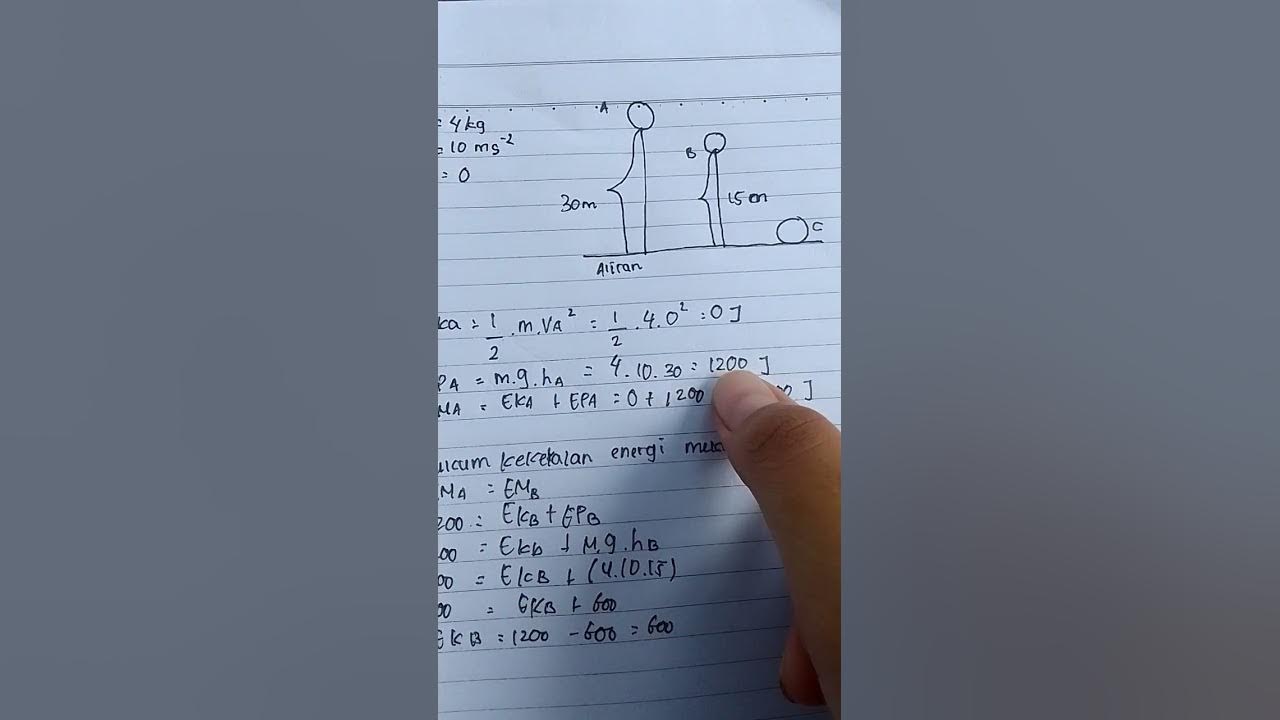 = 4 kg
= 10 ms⁻²
= 0
A
B
30 m
15 m
C
ka = 1/2 . m. VA² = 1/2 . 4. 0² = 0 J
PA = m.g.hA = 4.10.30 = 1200 J
MA = EKA + EPA = 0 + 1200 J
ukum kekekalan energi
MA = EMB
200 = EKB + EPB
00 = EKB + M.g.hB
00 = EKB + (4.10.15)
00 = EKB + 600
EKB = 1200 - 600 = 600